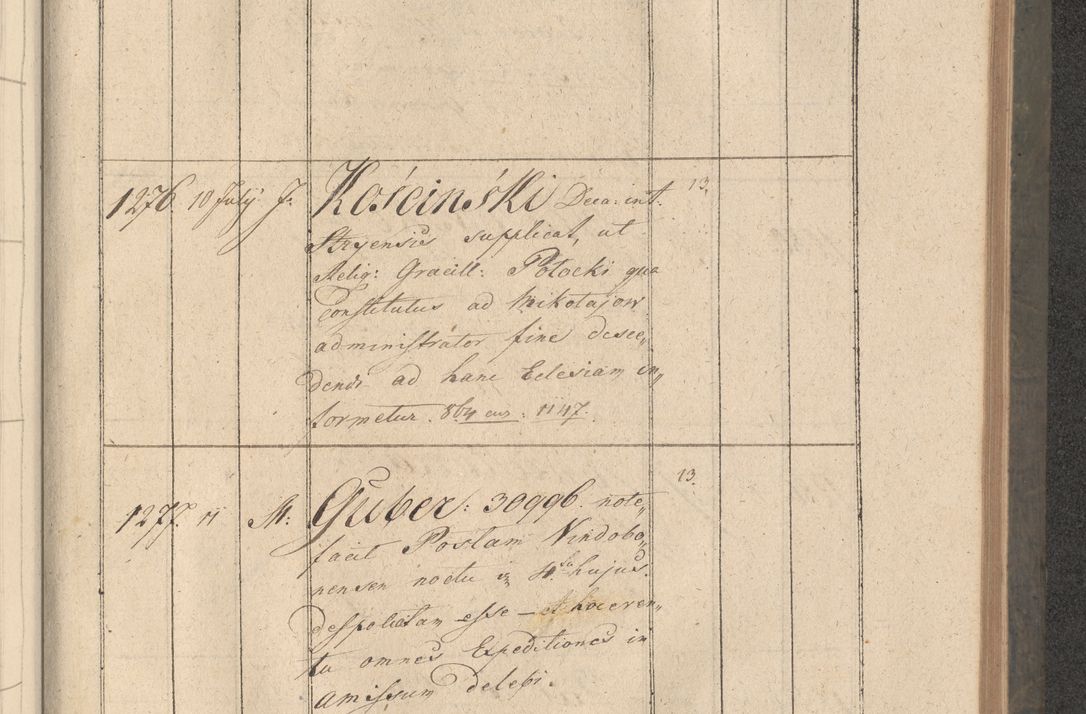 1276. 10 July J. Kościński Deca: int. 13.
Stryensis supplicat, ut
Relig: Graeill: Potocki qua
Constitutus ad Mikołajow
administrator fine desce„
dendi ad hanc Eclesiam in„
formetur. 864 cur: 1147.
1277. 11 M. Guber: 30996. note„ 13.
facit Postam Vindobo„
nensen noctu in 4ta hujus.
despolietam esse – et hoc even„
tu omnes Expeditiones in
amissum delebi.